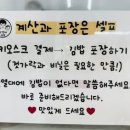 계산과 포장은 셀프
키오스크 결제 → 김밥 포장하기
(젓가락과 비닐은 필요한 만큼!)
진열대에 김밥이 없다면 말씀해주세요
바로 준비해드리겠습니다.
♥ 맛있게 드세요 ♥